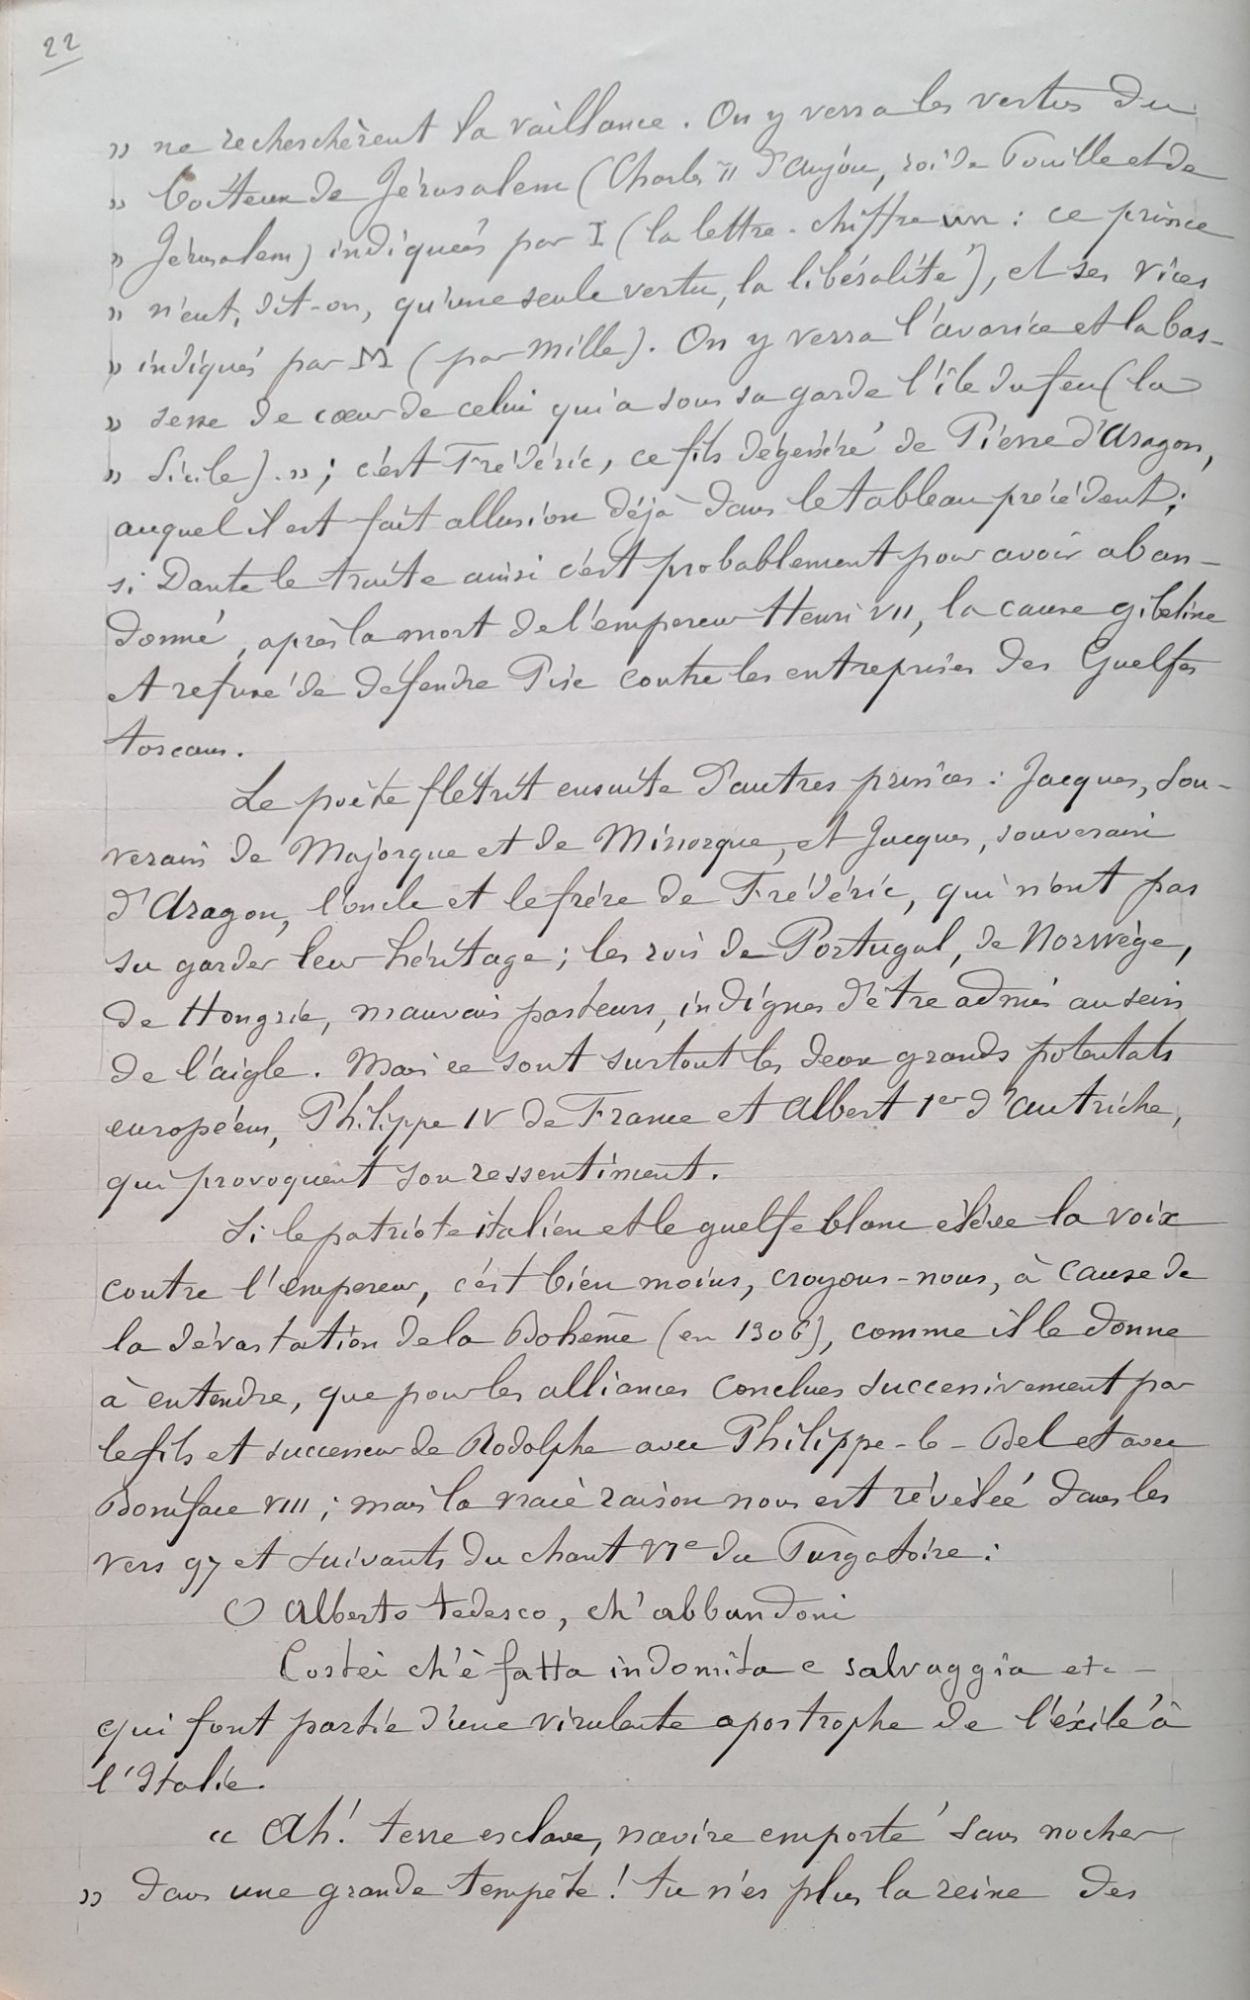 22
» ne recherchèrent la vaillance. On y verra les vertus du
» boiteux de Jérusalem (Charles II d'Anjou, roi de Pouille et de
» Jérusalem) indiqueés par I (la lettre-chiffre un : ce prince
» n'eut, dit-on, qu'une seule vertu, la libéralité), et ses vices
» indiqués par M (par mille). On y verra l'avarice et la bas-
» sesse de cœur de celui qui a sous sa garde l'île du feu (la
» Sicile). » ; c'est Frédéric, ce fils dégénéré de Pierre d'Aragon,
auquel il est fait allusion déjà dans le tableau précédent ;
si Dante le traite ainsi c'est probablement pour avoir aban-
donné, après la mort de l'empereur Henri VII, la cause gibeline
et refusé de défendre Pise contre les entreprises des Guelfes
toscans.
Le poète flétrit ensuite d'autres princes : Jacques, sou-
verain de Majorque et de Minorque, et Jacques, souverain
d'Aragon, l'oncle et le frère de Frédéric, qui n'ont pas
su garder leur héritage ; les rois de Portugal, de Norwège,
de Hongrie, mauvais pasteurs, indignes d'être admis au sein
de l'aigle. Mais ce sont surtout les deux grands potentats
européens, Philippe IV de France et Albert 1er d'Autriche,
qui provoquent son ressentiment.
Si le patriote italien et le guelfe blanc élève la voix
contre l'empereur, c'est bien moins, croyons-nous, à cause de
la dévastation de la Bohême (en 1306), comme il le donne
à entendre, que pour les alliances conclues successivement par
le fils et successeur de Rodolphe avec Philippe-le-Bel et avec
Boniface VIII ; mais la vraie raison nous est révélée dans les
vers 97 et suivants du chant VIe du Purgatoire :
O Alberto tedesco, ch'abbandoni
Costei ch'è fatta indomita e salvaggia etc -
qui font partie d'une virulente apostrophe de l'éxilé à
l'Italie.
« Ah! terre esclave, navire emporté sans nocher
» dans une grande tempête ! tu n'es plus la reine des